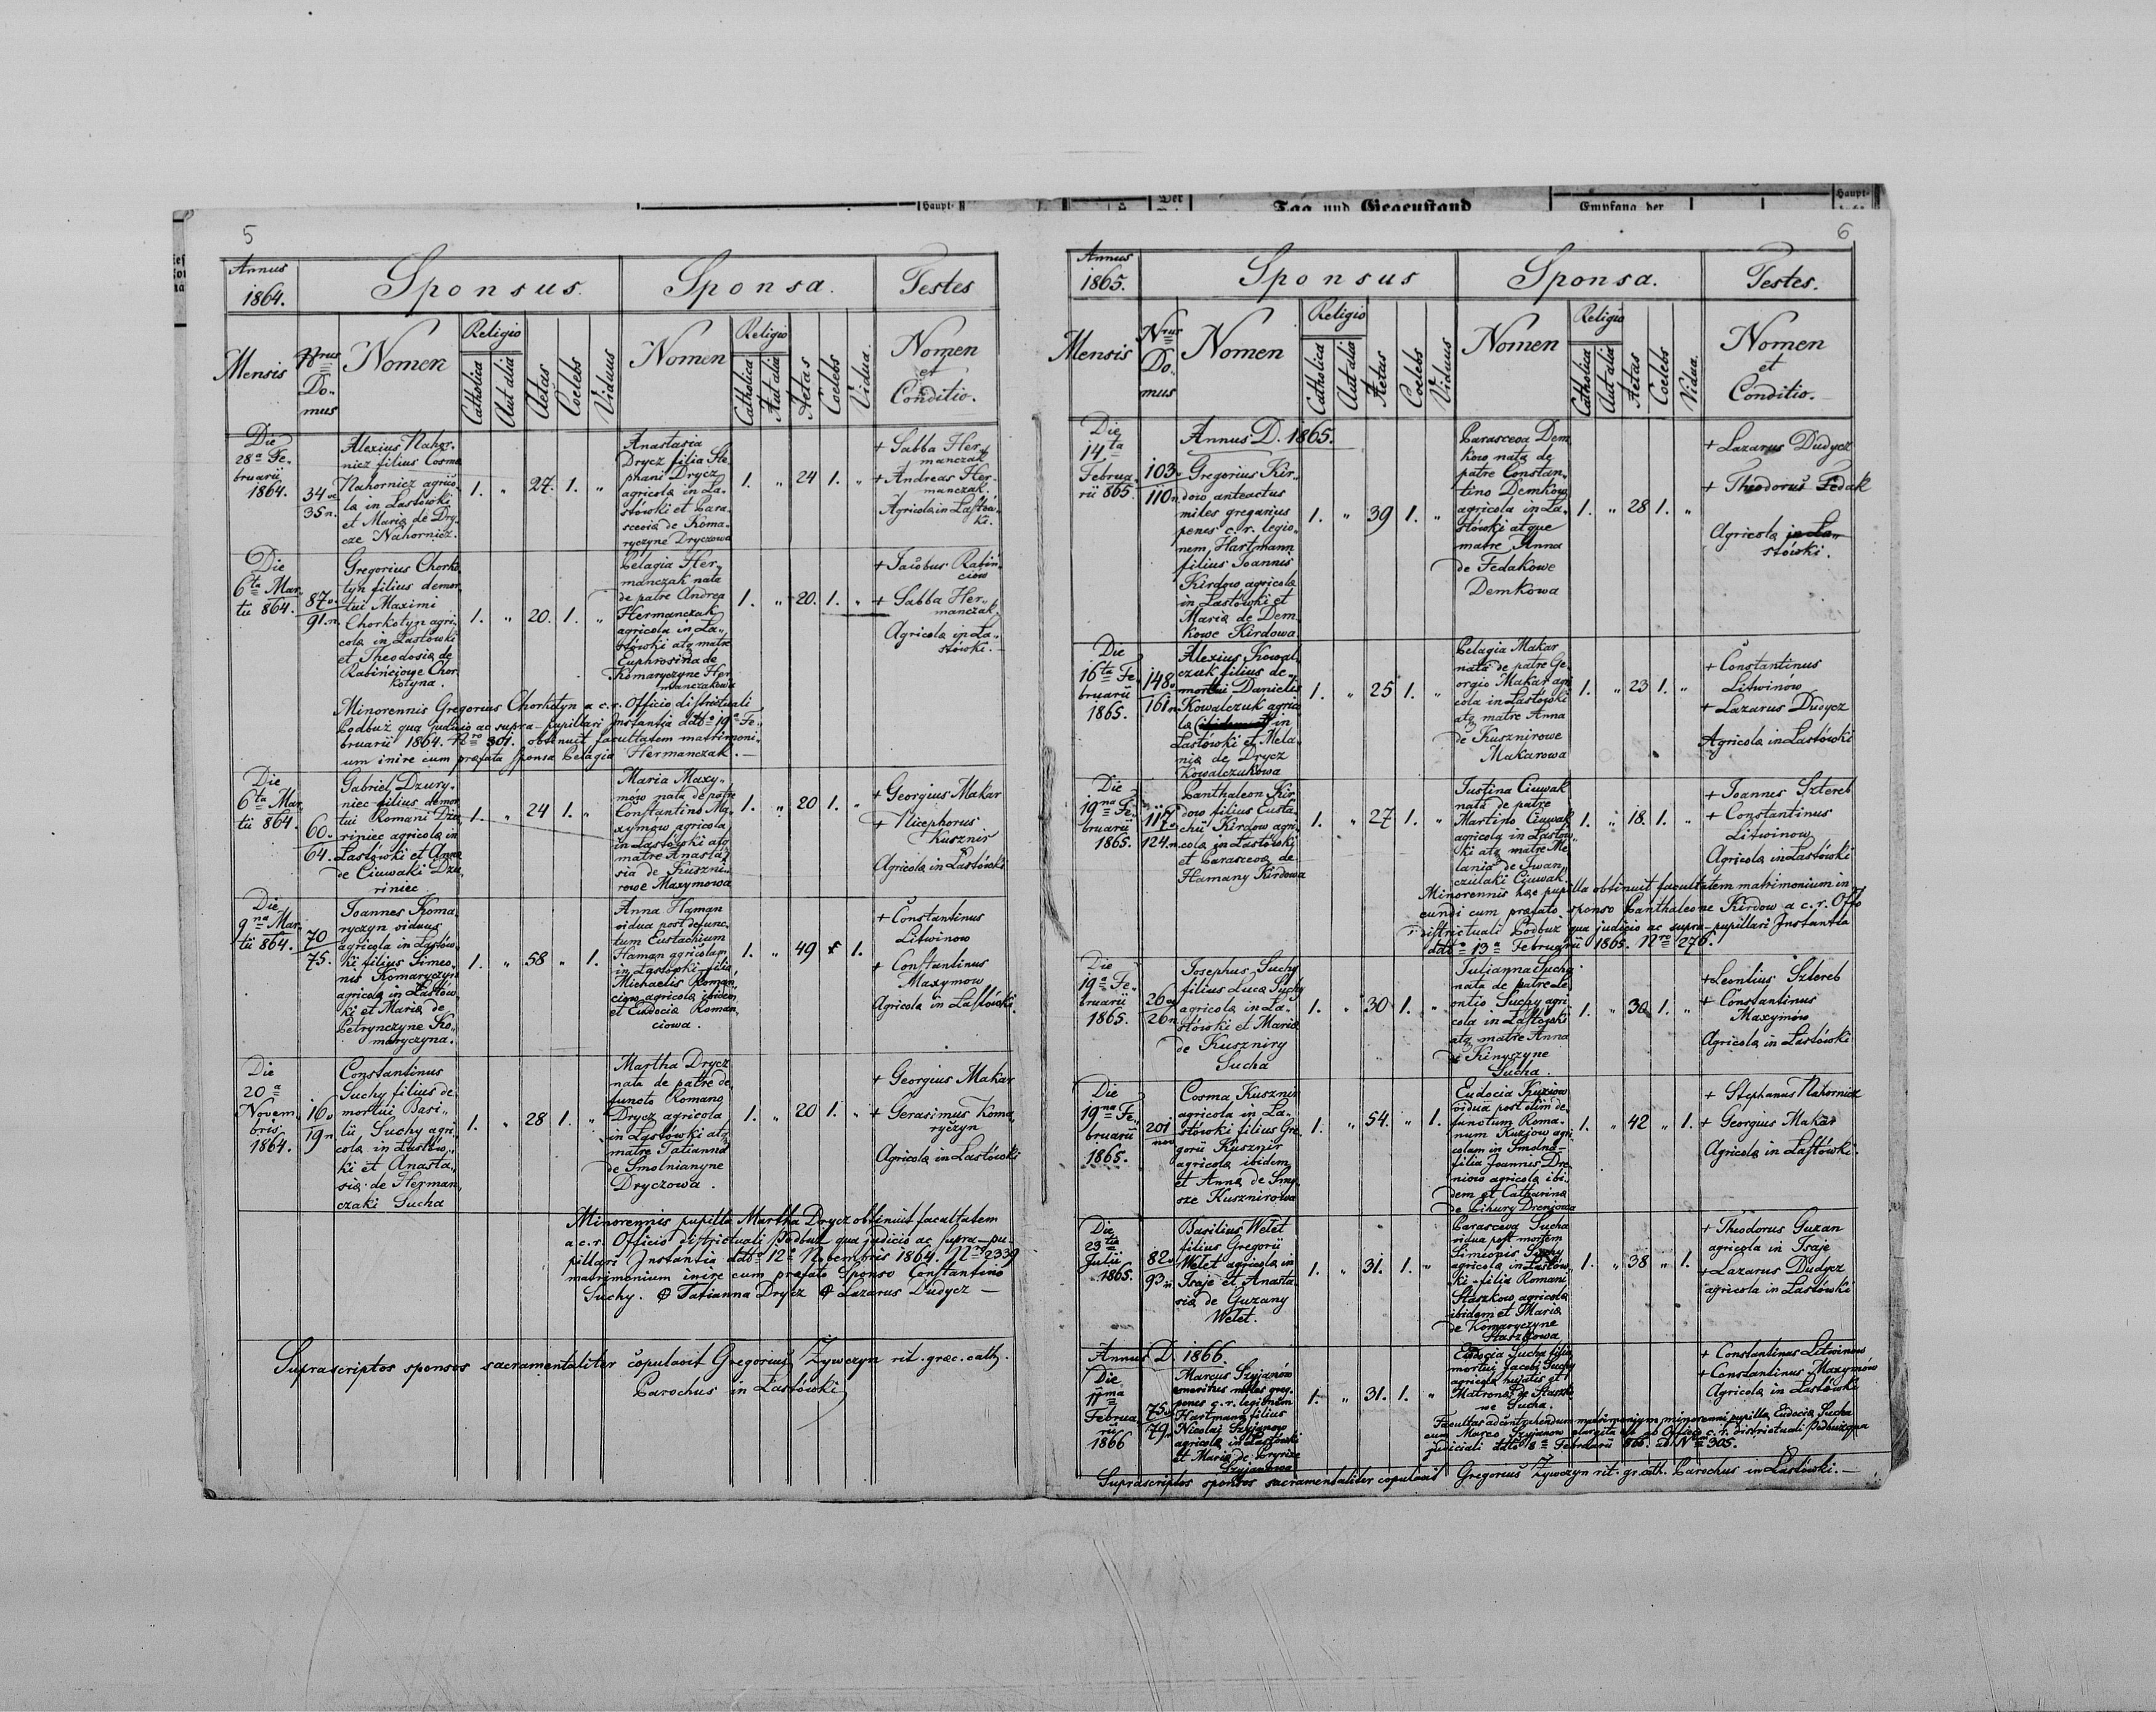 5
Annus
1864.
Sponsus.
Sponsa.
Testes
Mensis
Nrus
Do-
mus
Nomen
Religio
Catholica
Aut alia
Aetas
Coelebs
Viduus
Nomen
Religio
Catholica
Aut alia
Aetas
Coelebs
Vidua.
Nomen
et
Conditio.
Die
28a Fe-
bruarii
1864.
34 v.
35 n.
Alexius Nahor-
nicz filius Cosmae
Nahornicz agrico-
la in Lastówki
et Maria de Dry-
cze Nahornicz.
1. " 27. 1. "
Anastasia
Drycz filia Ste-
phani Drycz
agricola in La-
stówki et Para-
scevia de Koma-
ryczyne Dryczowa
1. " 24 1. "
+ Sabba Her-
manczak
+ Andreas Her-
manczak.
Agricola in Lastów-
ki.
Die
6ta Mar-
tii 864.
87 v.
91. n.
Gregorius Chorko-
tyn filius demor-
tui Maximi
Chorkotyn agri-
cola in Lastówki
et Theodosia de
Rabińciowe Chor-
kotyna.
1. " 20. 1. "
Pelagia Her-
manczak nata
de patre Andrea
Hermanczak
agricola in La-
stówki atq matre
Euphrosina de
Komaryczyne Her-
manczakowa
1. " 20. 1. "
+ Jacobus Rabiń-
ciow
+ Sabba Her-
manczak.
Agricola in La-
stówki.
Minorennis Gregorius Chorkotyn a c. r. Officio districtuali
Podbuż qua judicio ac supra-pupillari Instantia ddto 19a Fe-
bruarii 1864. Nro 301. obtinuit facultatem matrimoni-
um inire cum praefata sponsa Pelagia Hermanczak.
Die
6ta Mar-
tii 864.
60.
64.
Gabriel Dzury-
niec filius demor-
tui Romani Dzu-
riniec agricola in
Lastówki et Anna
de Ciuwaki Dzu-
riniec
1. " 24 1. "
Maria Maxy-
mów nata de patre
Constantino Ma-
xymow agricola
in Lastówki atq
matre Anasta-
sia de Kuszni-
rowe Maxymowa
1. " 20 1. "
+ Georgius Makar
+ Nicephorus
Kusznir
Agricola in Lastówki
Die
9na Mar-
tii 864.
70
75.
Joannes Koma-
ryczyn viduus
agricola in Lastów-
ki filius Simeo-
nis Komaryczyn
agricola in Lastów-
ki et Maria de
Petrynczyne Ko-
maryczyna.
1. " 58 " 1.
Anna Haman
vidua post defunc-
tum Eustachium
Haman agricolam
in Lastówki - filia
Michaelis Roman-
ciow agricola ibidem
et Eudocia Roman-
ciowa.
1. " 49 1.
+ Constantinus
Litwinow
+ Constantinus
Maxymow
Agricola in Lastówki.
Die
20a
Novem-
bris
1864.
16 v
19 n
Constantinus
Suchy filius de-
mortui Basi-
lii Suchy agri-
cola in Lastów-
ki et Anasta-
sia de Herman-
czaki Sucha
1. " 28 1. "
Martha Drycz
nata de patre de-
functo Romano
Drycz agricola
in Lastówki atq
matre Tatianna
de Smolnianyne
Dryczowa.
1. " 20 1. "
+ Georgius Makar
+ Gerasimus Koma-
ryczyn
Agricola in Lastówki
Minorennis pupilla Martha Drycz obtinuit facultatem
a c. r. Officio districtuali Podbuż qua judicio ac supra-pu-
pillari Instantia ddto 12a Novembris 1864. Nro 2339
matrimonium inire cum praefato Sponso Constantino
Suchy. Tatianna Drycz Lazarus Dudycz
Suprascriptos sponsos sacramentaliter copulavit Gregorius Żywczyn rit. graec. cath.
Parochus in Lastówki
6
Annus
1865.
Sponsus
Sponsa.
Testes.
Mensis
Nrus
Do-
mus
Nomen
Religio
Catholica
Aut alia
Aetas
Coelebs
Viduus
Nomen
Religio
Catholica
Aut alia
Aetas
Coelebs
Vidua.
Nomen
et
Conditio.
Annus D. 1865.
Die
14ta
Februa-
rii 865.
103 v
110 n
Gregorius Kir-
dow anteactus
miles gregarius
penes c. r. legio-
nem Hartmann
filius Joannis
Kirdow agricola
in Lastówki et
Maria de Dem-
kowe Kirdowa
1. " 39 1. "
Parasceva Dem-
kow nata de
patre Constan-
tino Demkow
agricola in La-
stówki atque
matre Anna
de Fedakowe
Demkowa
1. " 28 1. "
+ Lazarus Dudycz
+ Theodorus Fedak
Agricola in La-
stówki.
Die
16ta Fe-
bruarii
1865.
148 v
161 n
Alexius Kowal-
czuk filius de-
mortui Danielis
Kowalczuk agrico-
la in
Lastówki et Mela-
nia de Drycz
Kowalczukowa
1. " 25 1. "
Pelagia Makar
nata de patre Ge-
orgio Makar agri-
cola in Lastówki
atq matre Anna
de Kusznirowe
Makarowa
1. " 23 1. "
+ Constantinus
Litwinów
+ Lazarus Dudycz
Agricola in Lastówki
Die
19na Fe-
bruarii
1865.
117 v
124. n.
Panthaleon Kir-
dow filius Eusta-
chii Kirdow agri-
cola in Lastówki
et Parasceva de
Hamany Kirdowa
1. " 27 1. "
Justina Ciuwak
nata de patre
Martino Ciuwak
agricola in Lastów-
ki atq matre Me-
lania de Iwan-
czulaki Ciuwak
1. " 18. 1. "
+ Joannes Sztereb
+ Constantinus
Litwinow
Agricola in Lastówki
Minorennis haec pupilla obtinuit facultatem matrimonium in-
eundi cum praefato sponso Panthaleone Kirdow a c. r. Offo
districtuali Podbuż qua judicio ac supra-pupillari Instantia
ddto 13a Februarii 1865. Nro 276.
Die
19a Fe-
bruarii
1865.
26 v
26 n
Josephus Suchy
filius Luca Suchy
agricola in La-
stówki et Maria
de Kuszniry
Sucha
1. " 30 1. "
Julianna Suchy
nata de patre Le-
ontio Suchy agri-
cola in Lastówki
atq matre Anna
de Kinyczyne
Sucha.
1. " 30 1. "
+ Leontius Sztereb
+ Constantinus
Maxymów
Agricola in Lastówki
Die
19na Fe-
bruarii
1865.
201
nov
Cosma Kusznir
agricola in La-
stówki filius Gre-
gorii Kusznir
agricola ibidem
et Anna de Smy-
sze Kusznirowa
1. " 54. " 1.
Eudocia Kuziow
vidua post olim de-
functum Roma-
num Kuziow agri-
colam in Smolna -
filia Joannes Dre-
niow agricola ibi-
dem et Catharina
de Cihury Dreniowa
1. " 42 " 1.
+ Stephanus Nahornicz
+ Georgius Makar
Agricola in Lastówki.
Die
23tia
Julii
1865.
82 v
93 n
Basilius Wełet
filius Gregorii
Wełet agricola in
Isaje et Anasta-
sia de Guzany
Wełet.
1. " 31. 1. "
Parasceva Sucha
vidua post mortem
Simeonis Suchy
agricola in Lastów-
ki - filia Romani
Staszkow agricola
ibidem et Maria
de Komaryczyne
Staszkowa
1. " 38 " 1.
+ Theodorus Guzan
agricola in Isaje
+ Lazarus Dudycz
agricola in Lastówki
Annus D. 1866.
Die
11ma
Februa-
rii
1866
75 v
79 n
Marcus Szyjanów
emeritus miles greg.
penes c. r. legionem
Hartmann filius
Nicolai Szyjanow
agricola in Lastówki
et Maria de
Szyjanowa
1. " 31. 1. "
Eudocia Sucha filia
mortui Jacobi Suchy
agricola hujatis et
Matrona de Staszko-
we Sucha.
+ Constantinus Litwinow
+ Constantinus Maxymów
Agricola in Lastówki
Facultas ad contrahendum matrimonium minorenni pupilla Eudocia Sucha
cum Marco Szyjanow elargita est ab Officio c. r. districtuali Podbuż qua
judiciali ddto 8a Februarii 866. ad Nro 305.
Suprascriptos sponsos sacramentaliter copulavit Gregorius Żywczyn rit. gr. cath. Parochus in Lastówki.
Haupt-
Der
Tag und Gegenstand
Empfang der
Haupt-